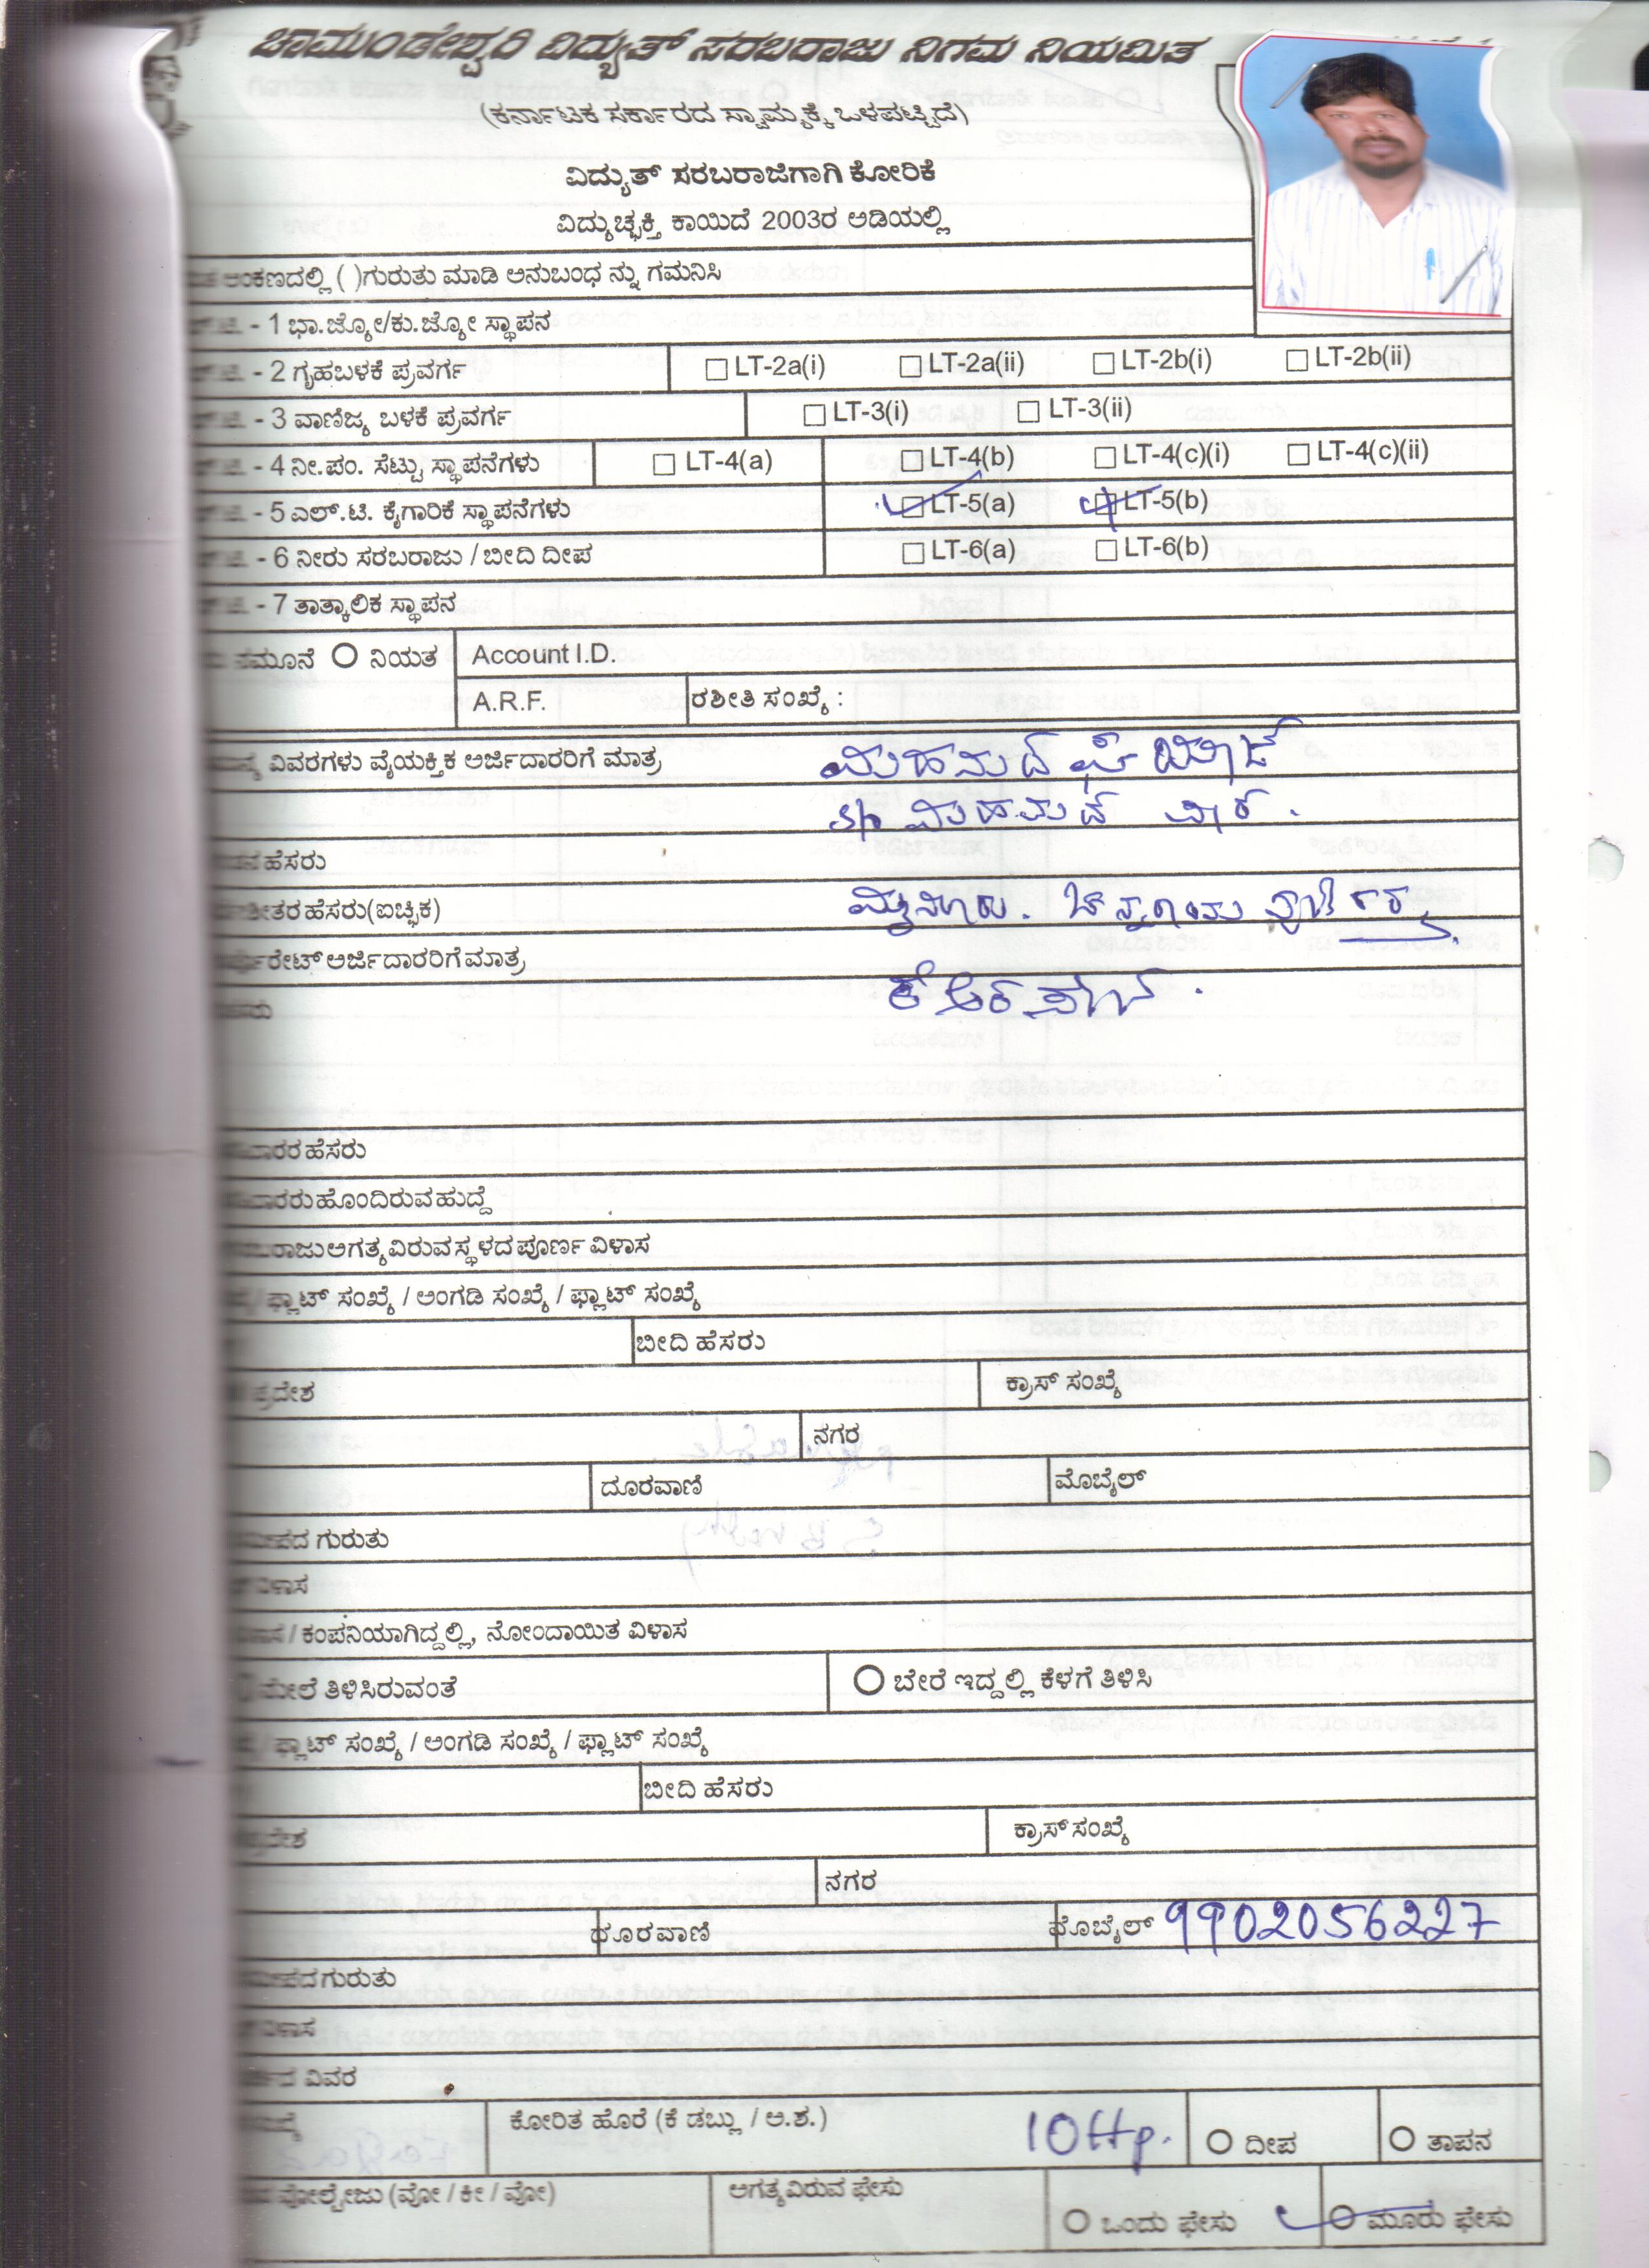 ಚಾಮುಂಡೇಶ್ವರಿ ವಿದ್ಯುತ್ ಸರಬರಾಜು ನಿಗಮ ನಿಯಮಿತ
(ಕರ್ನಾಟಕ ಸರ್ಕಾರದ ಸ್ವಾಮ್ಯಕ್ಕೆ ಒಳಪಟ್ಟಿದೆ)
ವಿದ್ಯುತ್ ಸರಬರಾಜಿಗಾಗಿ ಕೋರಿಕೆ
ವಿದ್ಯುಚ್ಛಕ್ತಿ ಕಾಯಿದೆ 2003ರ ಅಡಿಯಲ್ಲಿ
ಅಂಕಣದಲ್ಲಿ ( )ಗುರುತು ಮಾಡಿ ಅನುಬಂಧ ನ್ನು ಗಮನಿಸಿ
- 1 ಭಾ.ಜ್ಯೋ/ಕು.ಜ್ಯೋ ಸ್ಥಾಪನ
- 2 ಗೃಹಬಳಕೆ ಪ್ರವರ್ಗ LT-2a(i) LT-2a(ii) LT-2b(i) LT-2b(ii)
- 3 ವಾಣಿಜ್ಯ ಬಳಕೆ ಪ್ರವರ್ಗ LT-3(i) LT-3(ii)
- 4 ನೀ.ಪಂ. ಸೆಟ್ಟು ಸ್ಥಾಪನೆಗಳು LT-4(a) LT-4(b) LT-4(c)(i) LT-4(c)(ii)
- 5 ಎಲ್.ಟಿ. ಕೈಗಾರಿಕೆ ಸ್ಥಾಪನೆಗಳು LT-5(a) LT-5(b)
- 6 ನೀರು ಸರಬರಾಜು / ಬೀದಿ ದೀಪ LT-6(a) LT-6(b)
- 7 ತಾತ್ಕಾಲಿಕ ಸ್ಥಾಪನ
ನಮೂನೆ ನಿಯತ Account I.D.
A.R.F. ರಶೀತಿ ಸಂಖ್ಯೆ :
ವಿವರಗಳು ವೈಯಕ್ತಿಕ ಅರ್ಜಿದಾರರಿಗೆ ಮಾತ್ರ ಮಹಮದ್ ಫಯಾಜ್
S/o ಮಹಮದ್
ಹೆಸರು
ಹೆಸರು(ಐಚ್ಛಿಕ)
ಅರ್ಜಿದಾರರಿಗೆ ಮಾತ್ರ
ಕೆ ಆರ್
ಹೆಸರು
ಹೊಂದಿರುವ ಹುದ್ದೆ
ಅಗತ್ಯವಿರುವ ಸ್ಥಳದ ಪೂರ್ಣ ವಿಳಾಸ
/ ಫ್ಲಾಟ್ ಸಂಖ್ಯೆ / ಅಂಗಡಿ ಸಂಖ್ಯೆ / ಫ್ಲಾಟ್ ಸಂಖ್ಯೆ
ಬೀದಿ ಹೆಸರು
ಪ್ರದೇಶ ಕ್ರಾಸ್ ಸಂಖ್ಯೆ
ನಗರ
ದೂರವಾಣಿ ಮೊಬೈಲ್
ಗುರುತು
ವಿಳಾಸ
/ ಕಂಪನಿಯಾಗಿದ್ದಲ್ಲಿ, ನೋಂದಾಯಿತ ವಿಳಾಸ
ಮೇಲೆ ತಿಳಿಸಿರುವಂತೆ ಬೇರೆ ಇದ್ದಲ್ಲಿ ಕೆಳಗೆ ತಿಳಿಸಿ
/ ಫ್ಲಾಟ್ ಸಂಖ್ಯೆ / ಅಂಗಡಿ ಸಂಖ್ಯೆ / ಫ್ಲಾಟ್ ಸಂಖ್ಯೆ
ಬೀದಿ ಹೆಸರು
ಕ್ರಾಸ್ ಸಂಖ್ಯೆ
ನಗರ
ದೂರವಾಣಿ ಮೊಬೈಲ್ 9902056227
ಗುರುತು
ವಿಳಾಸ
ವಿವರ
ಕೋರಿತ ಹೊರೆ (ಕೆ ಡಬ್ಲು / ಅ.ಶ.) 10 Hp. ದೀಪ ತಾಪನ
ವೋಲ್ಟೇಜು (ವೋ / ಕೀ / ವೋ) ಅಗತ್ಯವಿರುವ ಫೇಸು ಒಂದು ಫೇಸು ಮೂರು ಫೇಸು